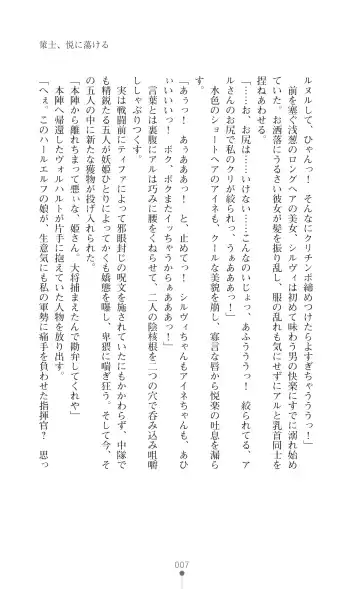 策士、悦に蕩ける
ルメルして、ひゃんっ！　そんなにクリチンポ締めつけたらよすぎちゃううっ！」
　前を塞ぐ浅葱のロングヘアの美女、シルヴィは初めて味わう男の快楽にすでに溺れ始め
ていた。お洒落にうるさい彼女が髪を振り乱し、服の乱れも気にせずにアルと乳首同士を
捏ねあわせる。
「……お、お尻は……いけない……こんなのいじょ、あふううう！　絞られてる、ア
ルさんのお尻で私のクリが絞られっ、うぁああああっ！」
　水色のショートヘアのアイネも、クールな美貌を崩し、寡言な唇から悦楽の吐息を漏ら
す。
「あぅっ！　あぅあああっ！　と、止めてっ！　シルヴィちゃんもアイネちゃんも、あひ
ぃいいいっ！　ボク、ボクまたイッちゃうからぁあああっ！」
　言葉とは裏腹にアルは巧みに腰をくねらせて、二人の陰核根を二つの穴で呑み込み咀嚼
ししゃぶりつくす。
　実は戦闘前にティファによって邪眼封じの呪文を施されていたにもかかわらず、中隊で
も精鋭たる五人が妖姫ひとりによってかくも嬌態を曝し、卑猥に喘ぎ狂う。そして今、そ
の五人の中に新たな獲物が投げ入れられた。
「本陣から離れちまって悪ぃな、姫さん。大将捕まえたんで勘弁してくれや」
　本陣へ帰還したヴォルハルトが片手に抱えていた人物を放り出す。
「へぇ。このハールエルフの娘が、生意気にも私の軍勢に痛手を負わせた指揮官？　思っ
007